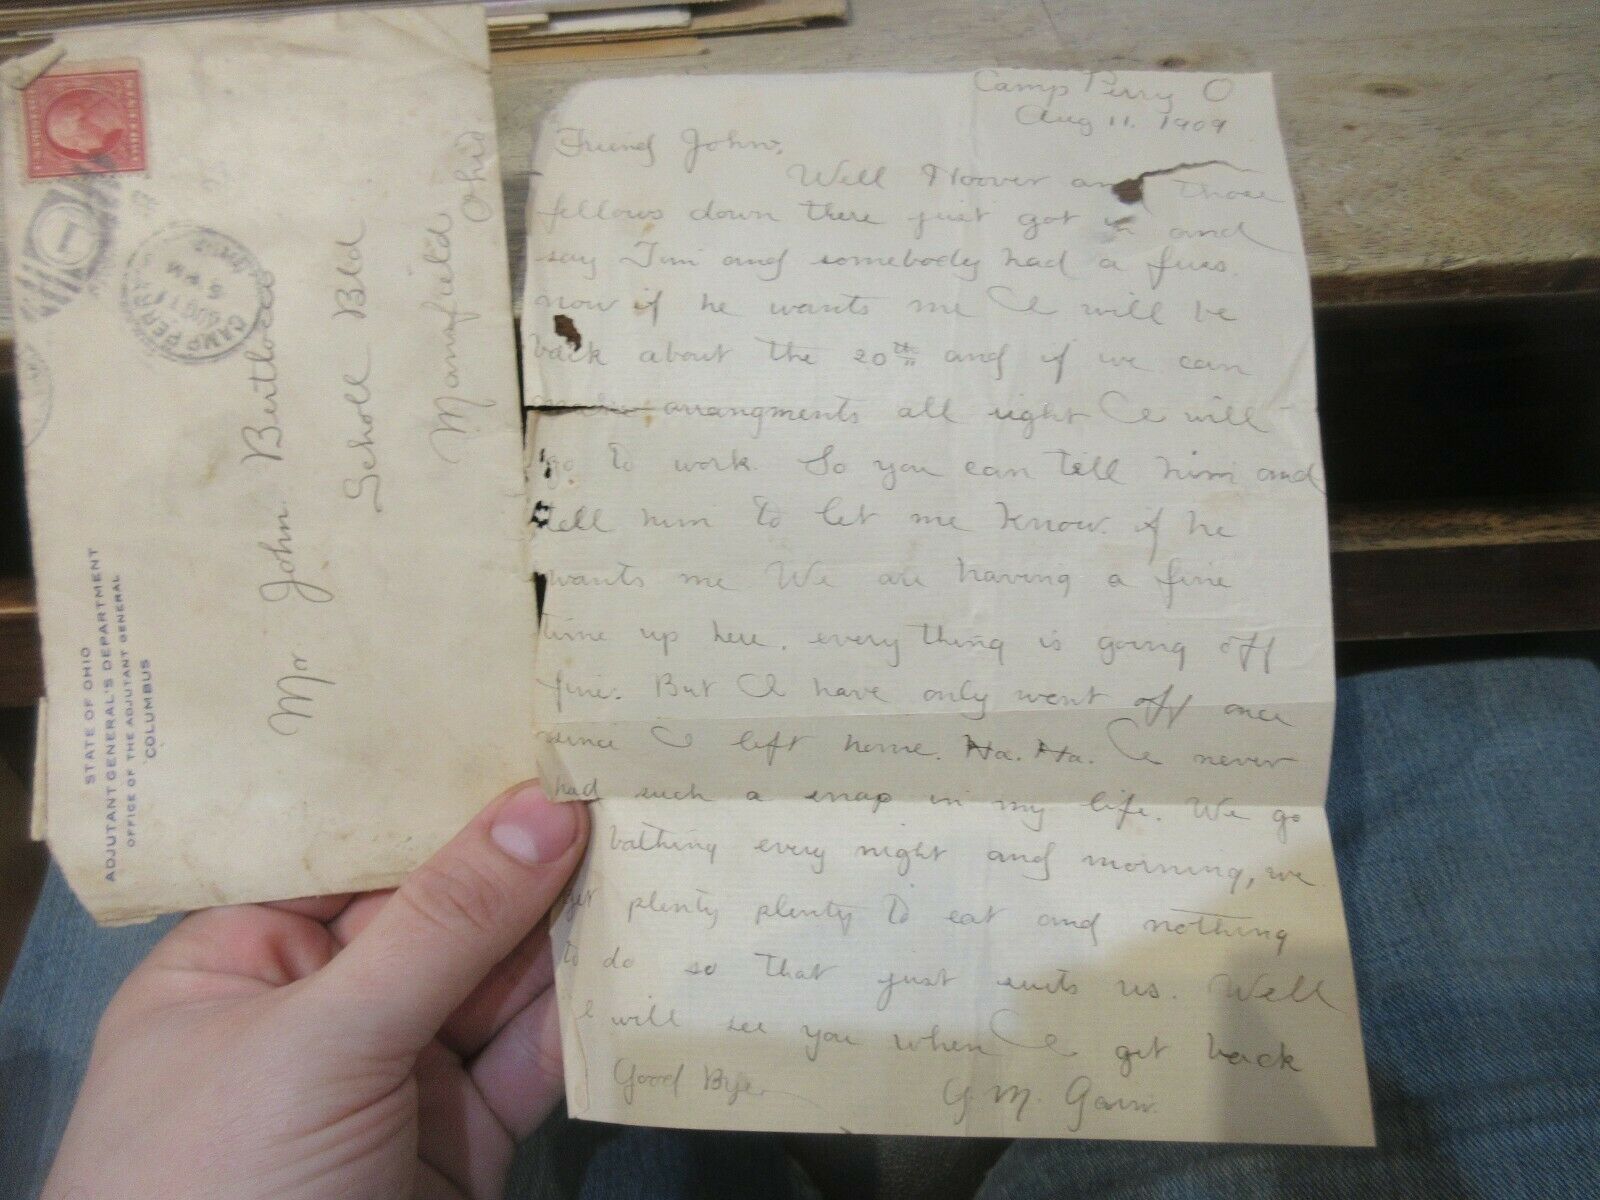 STATE OF OHIO
ADJUTANT GENERAL'S DEPARTMENT
OFFICE OF THE ADJUTANT GENERAL
COLUMBUS
CAMP PERRY
AUG 11
5 PM
1
Mr John Bertlocco
School Bld
Mansfield
Ohio
Camp Perry O
Aug 11. 1909
Friend John,
Well Hoover and those
fellows down there just got in and
say Jim and somebody had a fuss.
now if he wants me I will be
back about the 20th and if we can
make arrangments all right I will
go to work. So you can tell him and
tell him to let me know if he
wants me We are having a fine
time up here. every thing is going off
fine. But I have only went off once
since I left home. Ha. Ha. I never
had such a snap in my life. We go
bathing every night and morning, we
get plenty plenty to eat and nothing
to do so that just suits us. Well
I will see you when I get back
Good Bye
G. M.